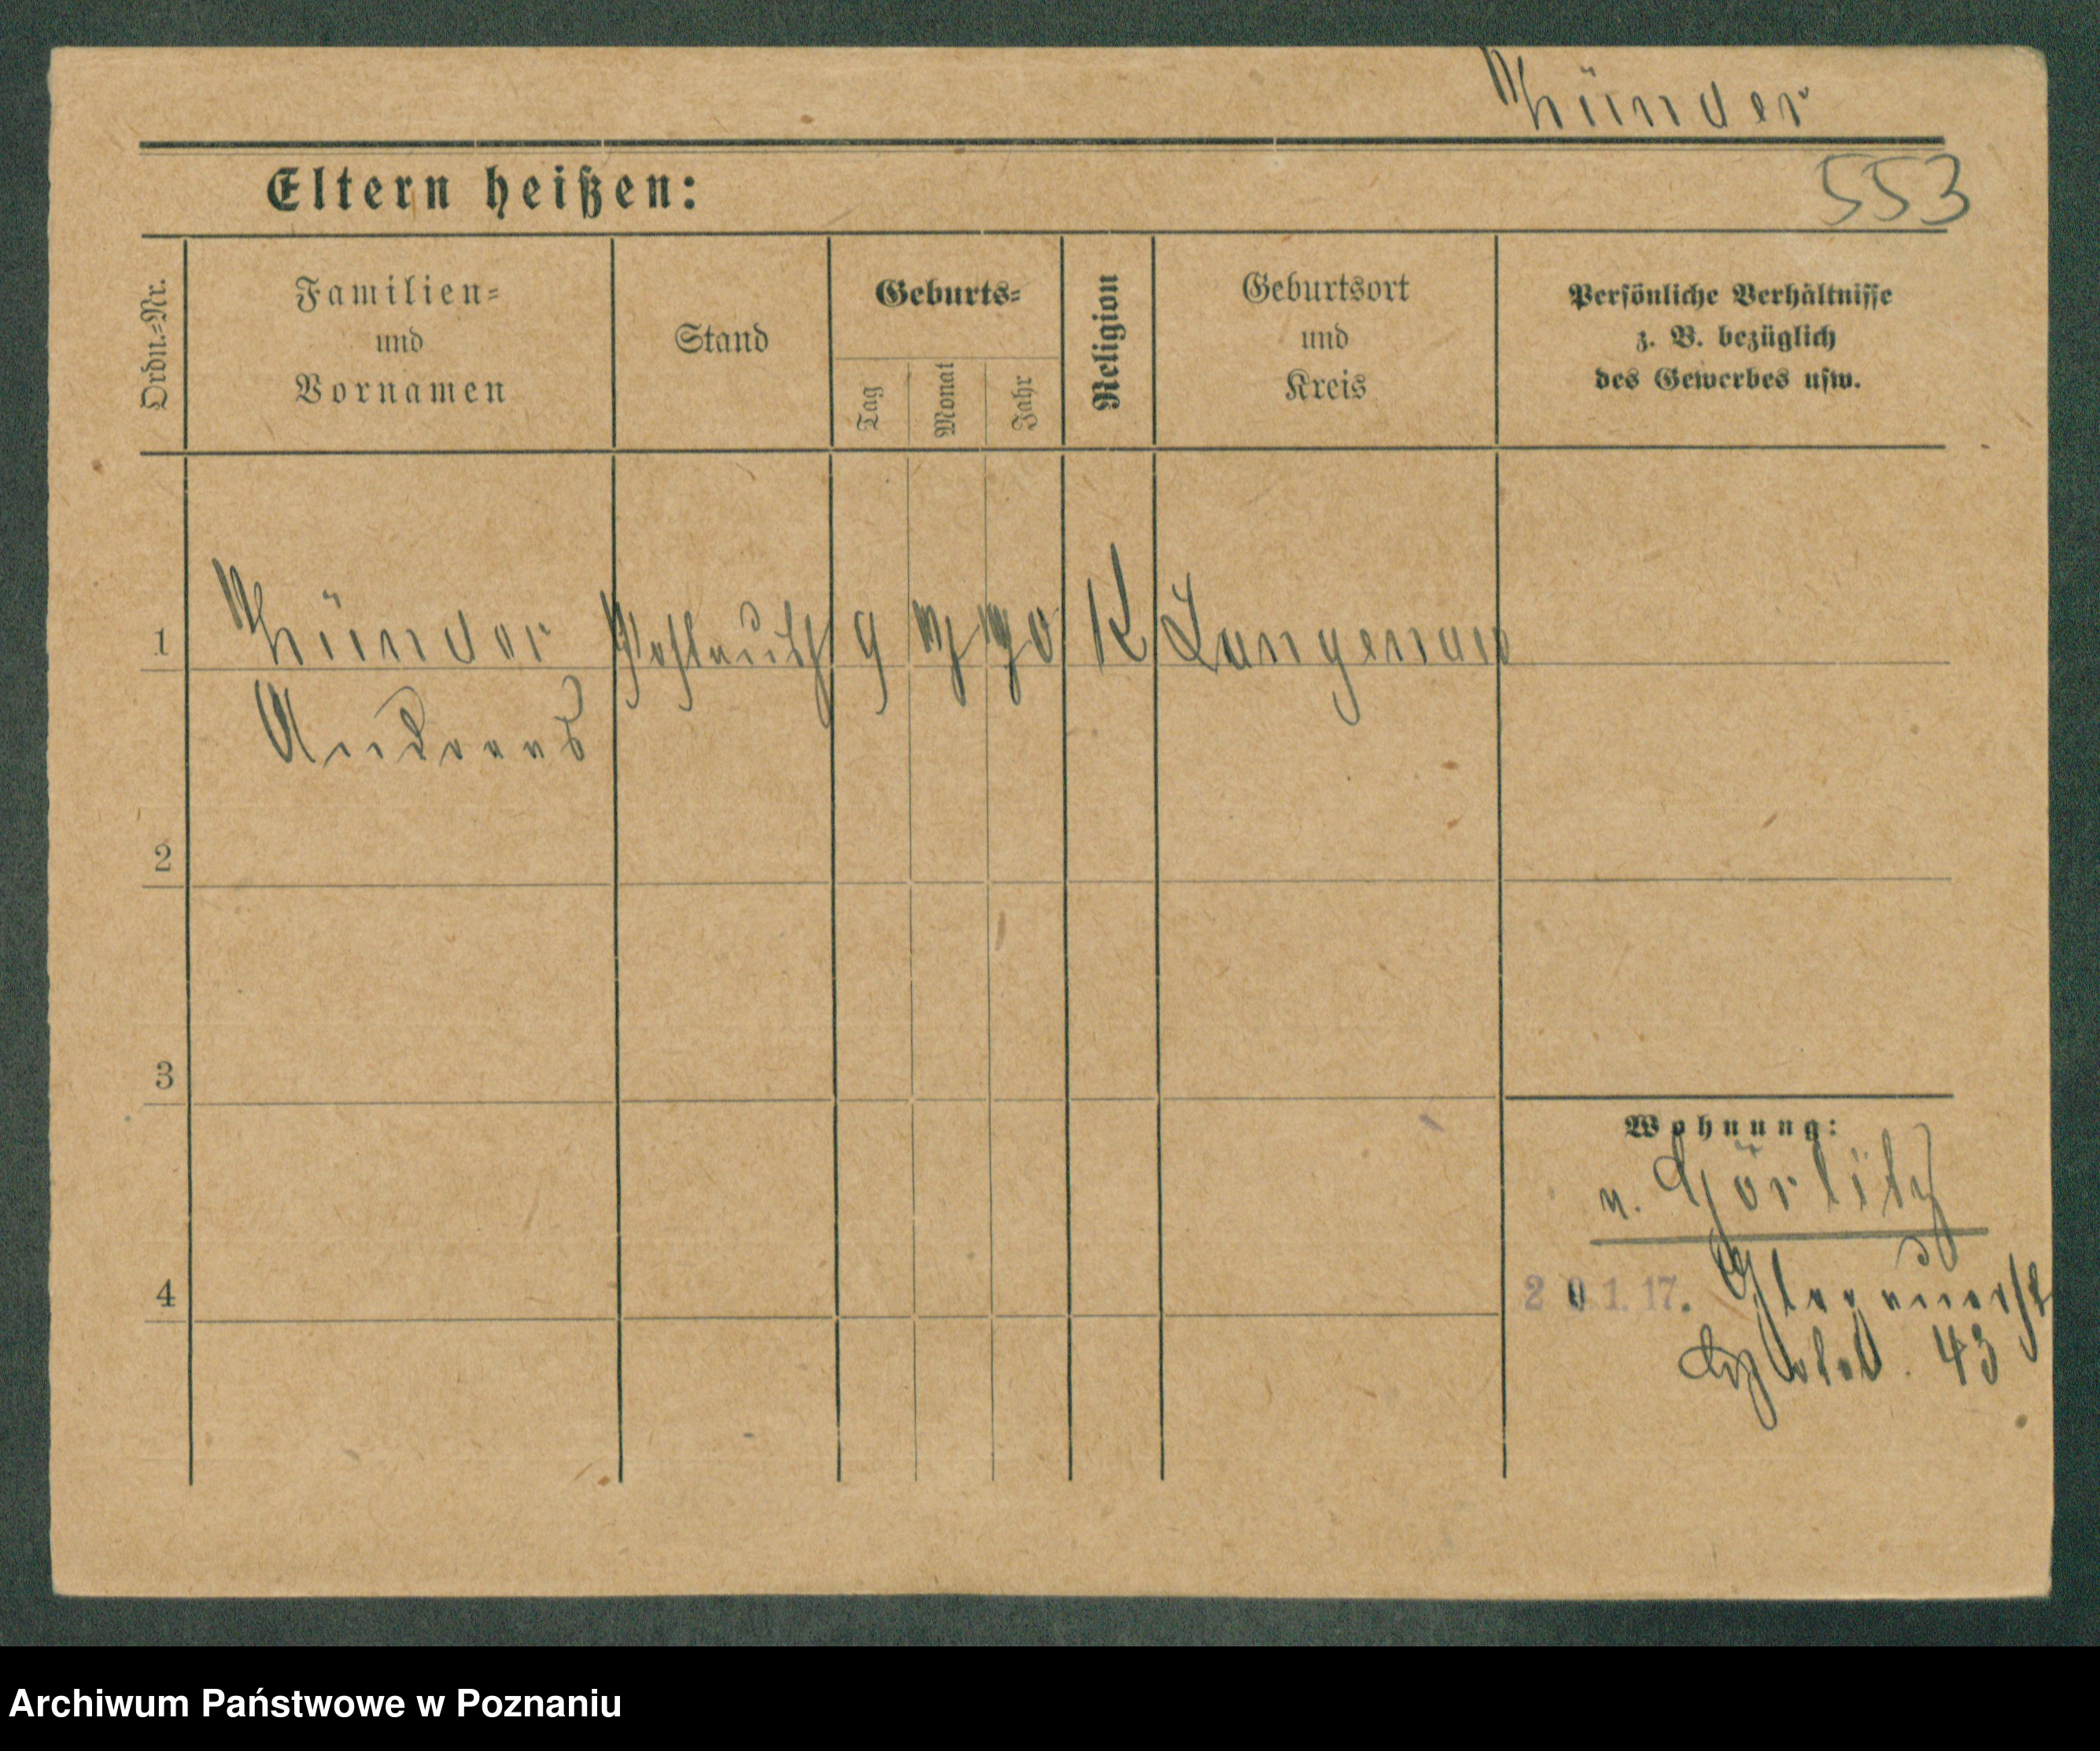 Thünder
553
Eltern heißen:
Ordn.=Nr.
Familien=
und
Vornamen
Stand
Geburts=
Tag
Monat
Jahr
Religion
Geburtsort
und
Kreis
Persönliche Verhältnisse
z. B. bezüglich
des Gewerbes usw.
1
Thünder
9
K
Langenau
Andreas
2
3
4
Wohnung:
n. Görlitz
20.1.17.
43
Archiwum Państwowe w Poznaniu